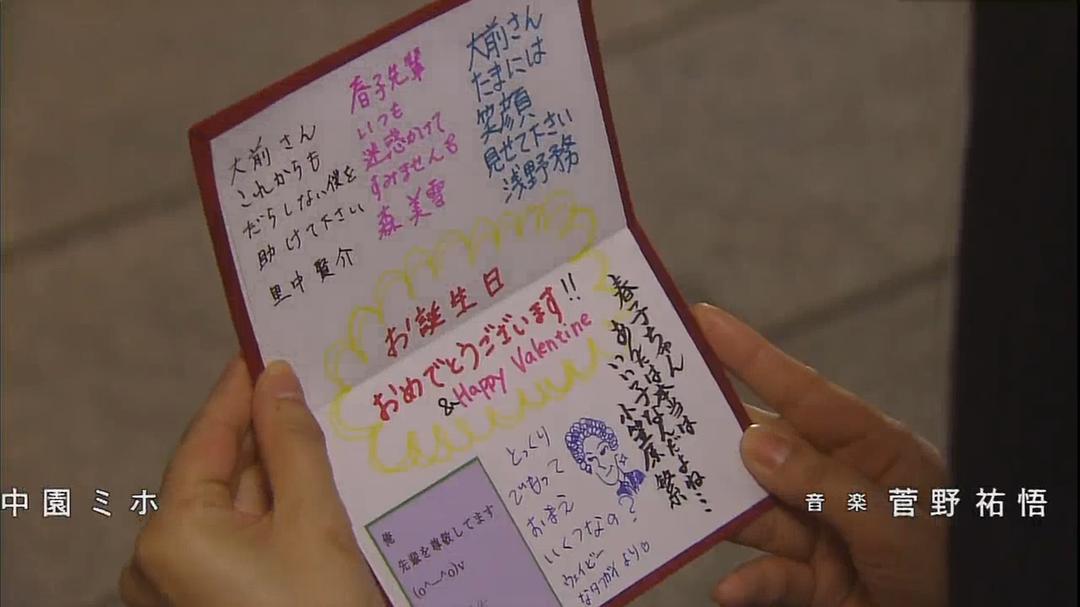 大前さん
たまには
笑顔
見せて下さい
浅野務
春子先輩
いつも
迷惑かけて
すみませんも
森美雪
大前さん
これからも
だらしない僕を
助けて下さい
里中賢介
お誕生日
おめでとうございます!!
&Happy Valentine
春子ちゃん
あんたは本当は
いい子なんだよね…
小笠原繁
とっくり
でもって
おまえ
いくつなの?
ウェイビー
なタフガイより
俺
先輩を尊敬してます
(o^―^o)v
中園ミホ
音楽 菅野祐悟